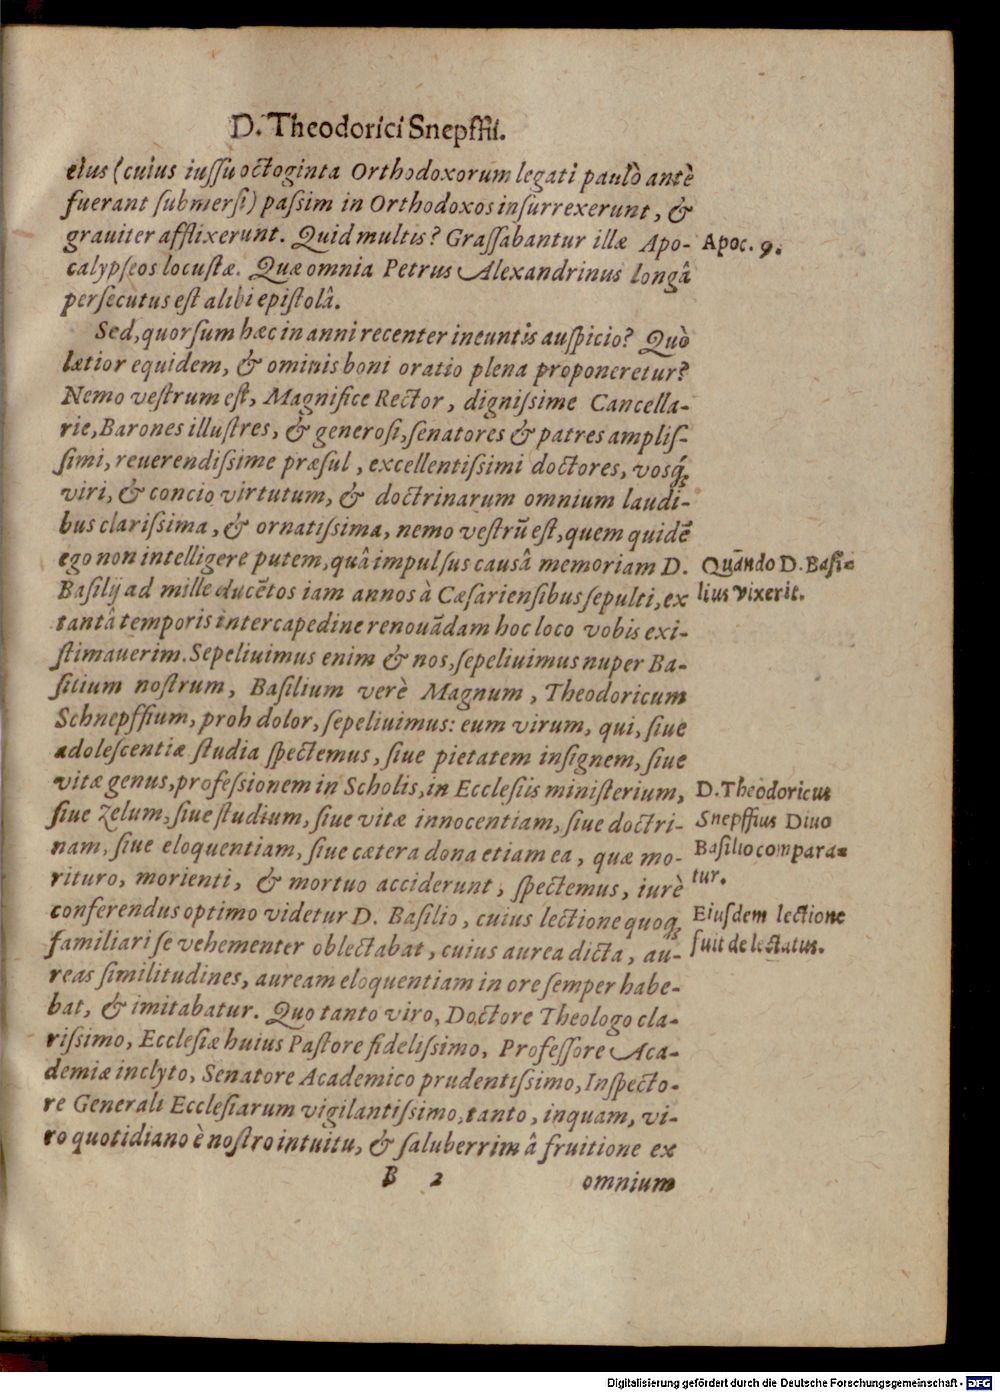 D. Theodorici Snepffii.
eius (cuius iussu octoginta Orthodoxorum legati paulò antè
fuerant submersi) passim in Orthodoxos insurrexerunt, &
grauiter afflixerunt. Quid multis? Grassabantur illæ Apo-
Apoc. 9.
calypseos locustæ. Quæ omnia Petrus Alexandrinus longâ
persecutus est alibi epistolâ.
Sed, quorsum hæc in anni recenter ineuntis auspicio? Quò
lætior equidem, & ominis boni oratio plena proponeretur?
Nemo vestrum est, Magnifice Rector, dignissime Cancella-
rie, Barones illustres, & generosi, senatores & patres amplis-
simi, reuerendissime præsul, excellentissimi doctores, vosq́;
viri, & concio virtutum, & doctrinarum omnium laudi-
bus clarissima, & ornatissima, nemo vestrũ est, quem quidẽ
ego non intelligere putem, quâ impulsus causâ memoriam D.
Quãndo D. Basi-
lius vixerit.
Basilij ad mille ducẽtos iam annos à Cæsariensibus sepulti, ex
tantâ temporis intercapedine renouãdam hoc loco vobis exi-
stimauerim. Sepeliuimus enim & nos, sepeliuimus nuper Ba-
silium nostrum, Basilium verè Magnum, Theodoricum
Schnepffium, proh dolor, sepeliuimus: eum virum, qui, siue
adolescentiæ studia spectemus, siue pietatem insignem, siue
vitæ genus, professionem in Scholis, in Ecclesiis ministerium,
D. Theodoricus
Snepffius Diuo
Basilio compara-
tur.
siue zelum, siue studium, siue vitæ innocentiam, siue doctri-
nam, siue eloquentiam, siue cætera dona etiam ea, quæ mo-
rituro, morienti, & mortuo acciderunt, spectemus, iurè
conferendus optimo videtur D. Basilio, cuius lectione quoq;
Eiusdem lectione
fuit delectatus.
familiari se vehementer oblectabat, cuius aurea dicta, au-
reas similitudines, auream eloquentiam in ore semper habe-
bat, & imitabatur. Quo tanto viro, Doctore Theologo cla-
rissimo, Ecclesiæ huius Pastore fidelissimo, Professore Aca-
demiæ inclyto, Senatore Academico prudentissimo, Inspecto-
re Generali Ecclesiarum vigilantissimo, tanto, inquam, vi-
ro quotidiano è nostro intuitu, & saluberrimâ fruitione ex
B 2
omnium
Digitalisierung gefördert durch die Deutsche Forschungsgemeinschaft - DFG